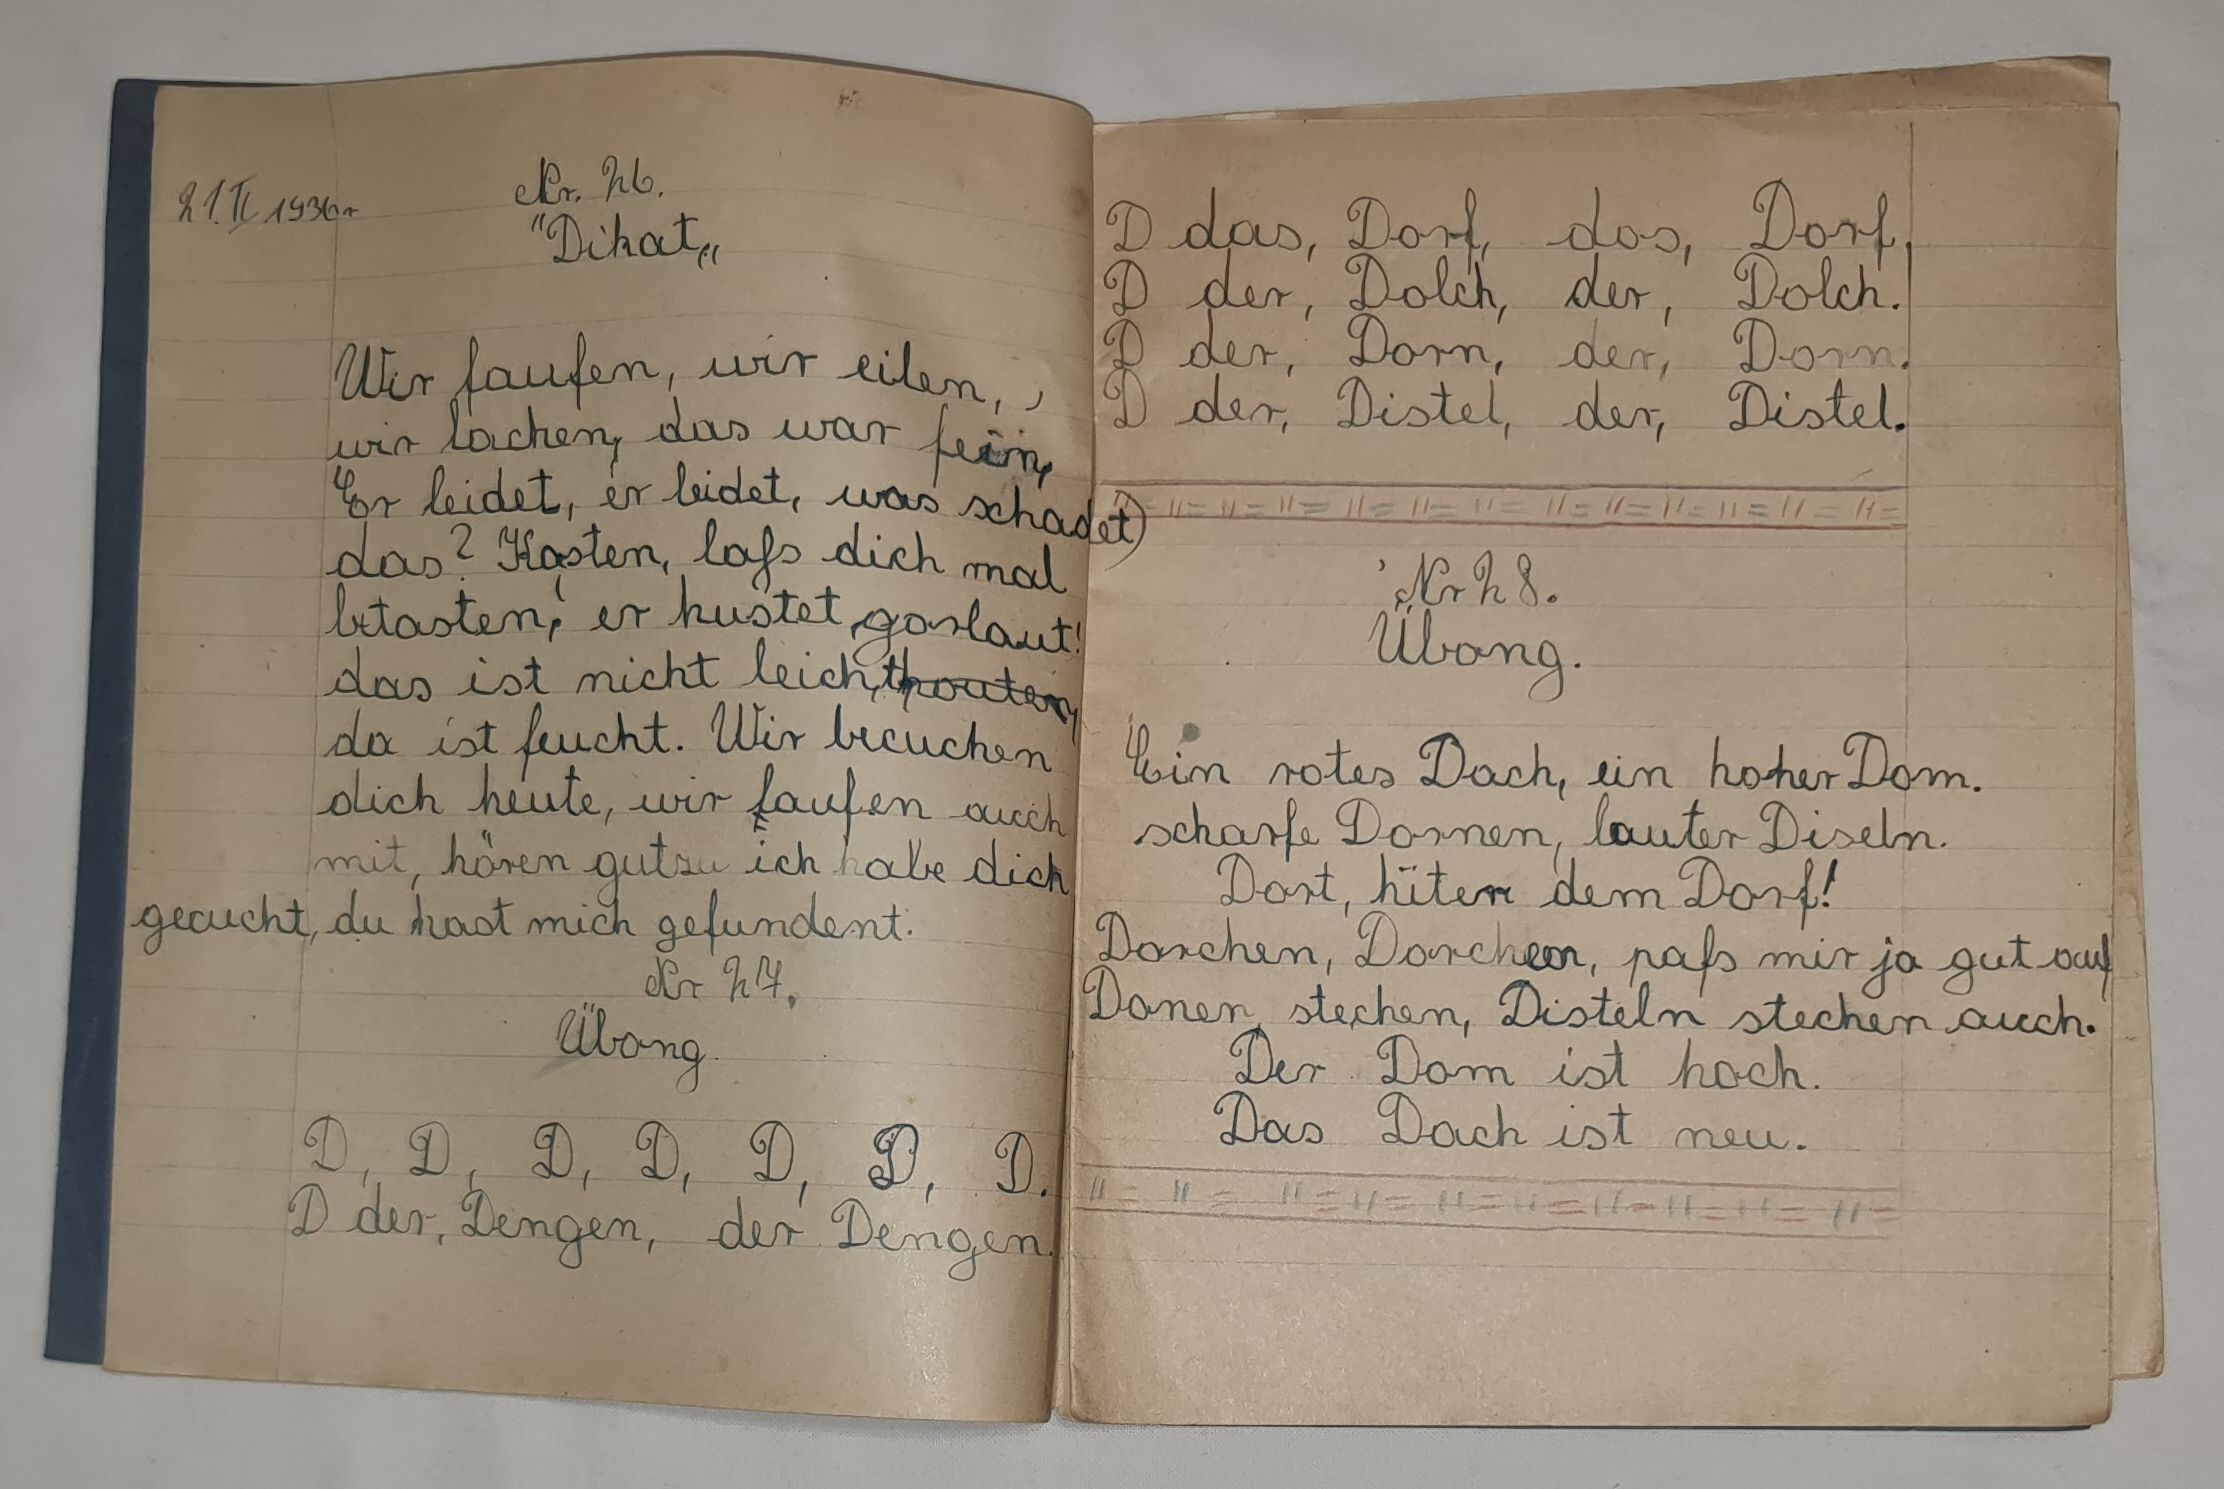 21.II 1936r
Nr. 26.
"Dikat„
Wir faufen, wir eilen, ,
wir lachen, das war fein,
Er leidet, er leidet, was schadet)
das? Kasten, laſs dich mal
betasten, er hustet, garlaut!
das ist nicht leicht,
da ist feucht. Wir becuchen
dich heute, wir faufen auch
mit, hören gutzu ich habe dich
gecucht, du hast mich gefundent.
Nr 27.
Übong.
D, D, D, D, D, D, D.
D der, Dengen, der Dengen.
D das, Dorf, das, Dorf,
D der, Dolch, der, Dolch.
D der, Dorn, der, Dorn.
D der, Distel, der, Distel.
Nr 28.
Übong.
Ein rotes Dach, ein hoher Dom.
scharfe Dornen, lauter Diseln.
Dort, hiten dem Dorf!
Dorchen, Dorchen, paſs mir ja gut auf
Donen stechen, Disteln stechen auch.
Der Dom ist hoch.
Das Dach ist neu.